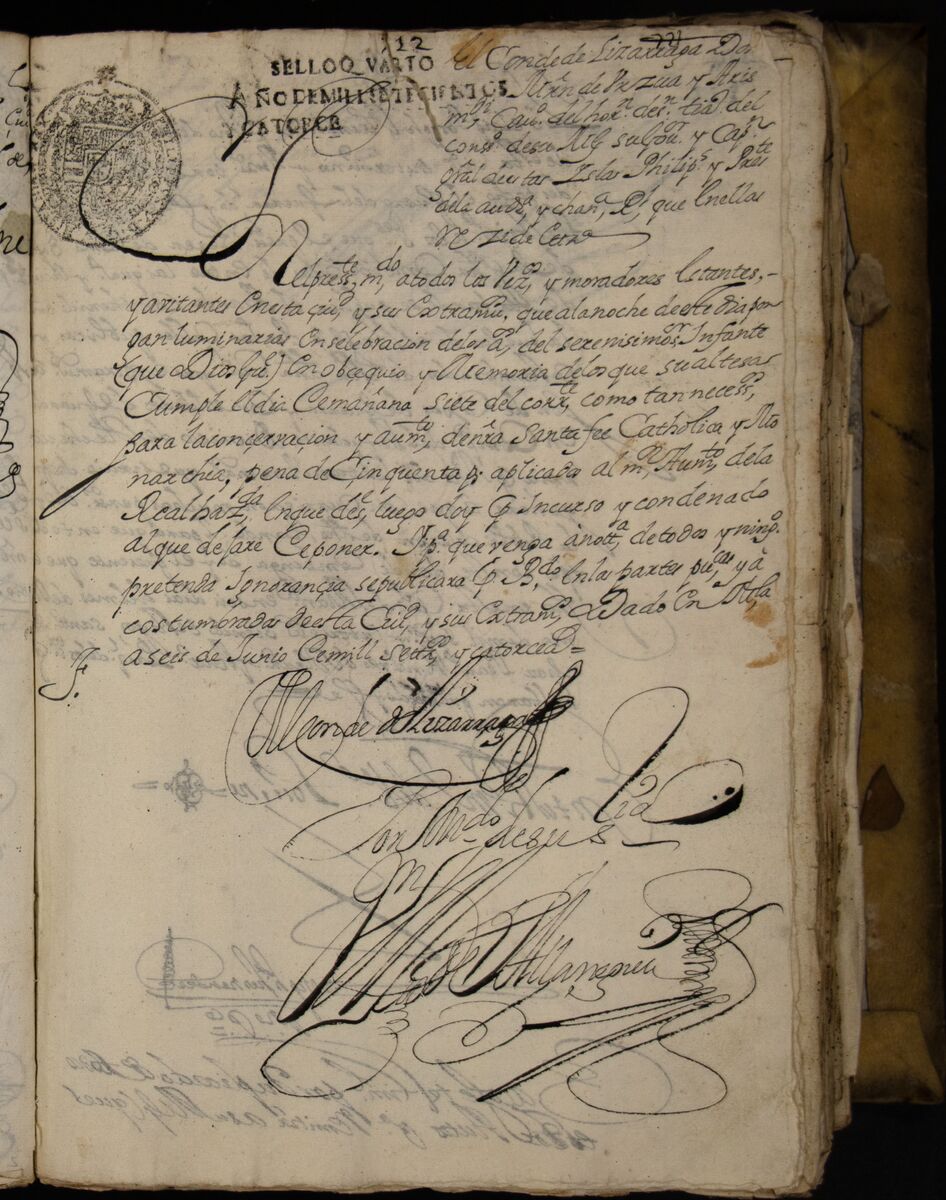 12
221
SELLO QVARTO
AÑO DE MIL SIETECIENTOS
Y CATORCE
El Conde de Lizarraga Don
Mrn de Vrzua y Aris
mi, Cauo. del horn. de sn. tiago. del
consejo. de su Mg su gour. y Capn
gral de estas Yslas Philips. y Preste
de la auda, y chanr, Rl, que en ellas
rezide Cetra
Por el preste, mdo, a todos los Vezos, y moradores estantes,
y avitantes en esta ciud, y sus extramus, que a la noche de este dia pon
gan luminarias en selebracion de los as, del serenisimo sr. Infante
(que Dios ge) en obcequio y Memoria de los que su altesas
Cumple el dia de mañana siete del corrte, como tan necesso,
para la concervacion y aumto, de nra Santa fee Catholica y Mo
narchia, pena de Cinquenta ps aplicados al mr Aumto, de la
Real hazda, en que desde, luego doy p Incurso y condenado
al que dejare de poner. Y pa. que venga à notta, de todos y ningo.
pretenda ygnorancia se publicara p Bdo, en las partes pucas, y à
costumbradas de esta Ciud, y sus extramus, dado en Mla,
a seis de Junio de mill setesos y catorce as =
El Conde de Lizarraga